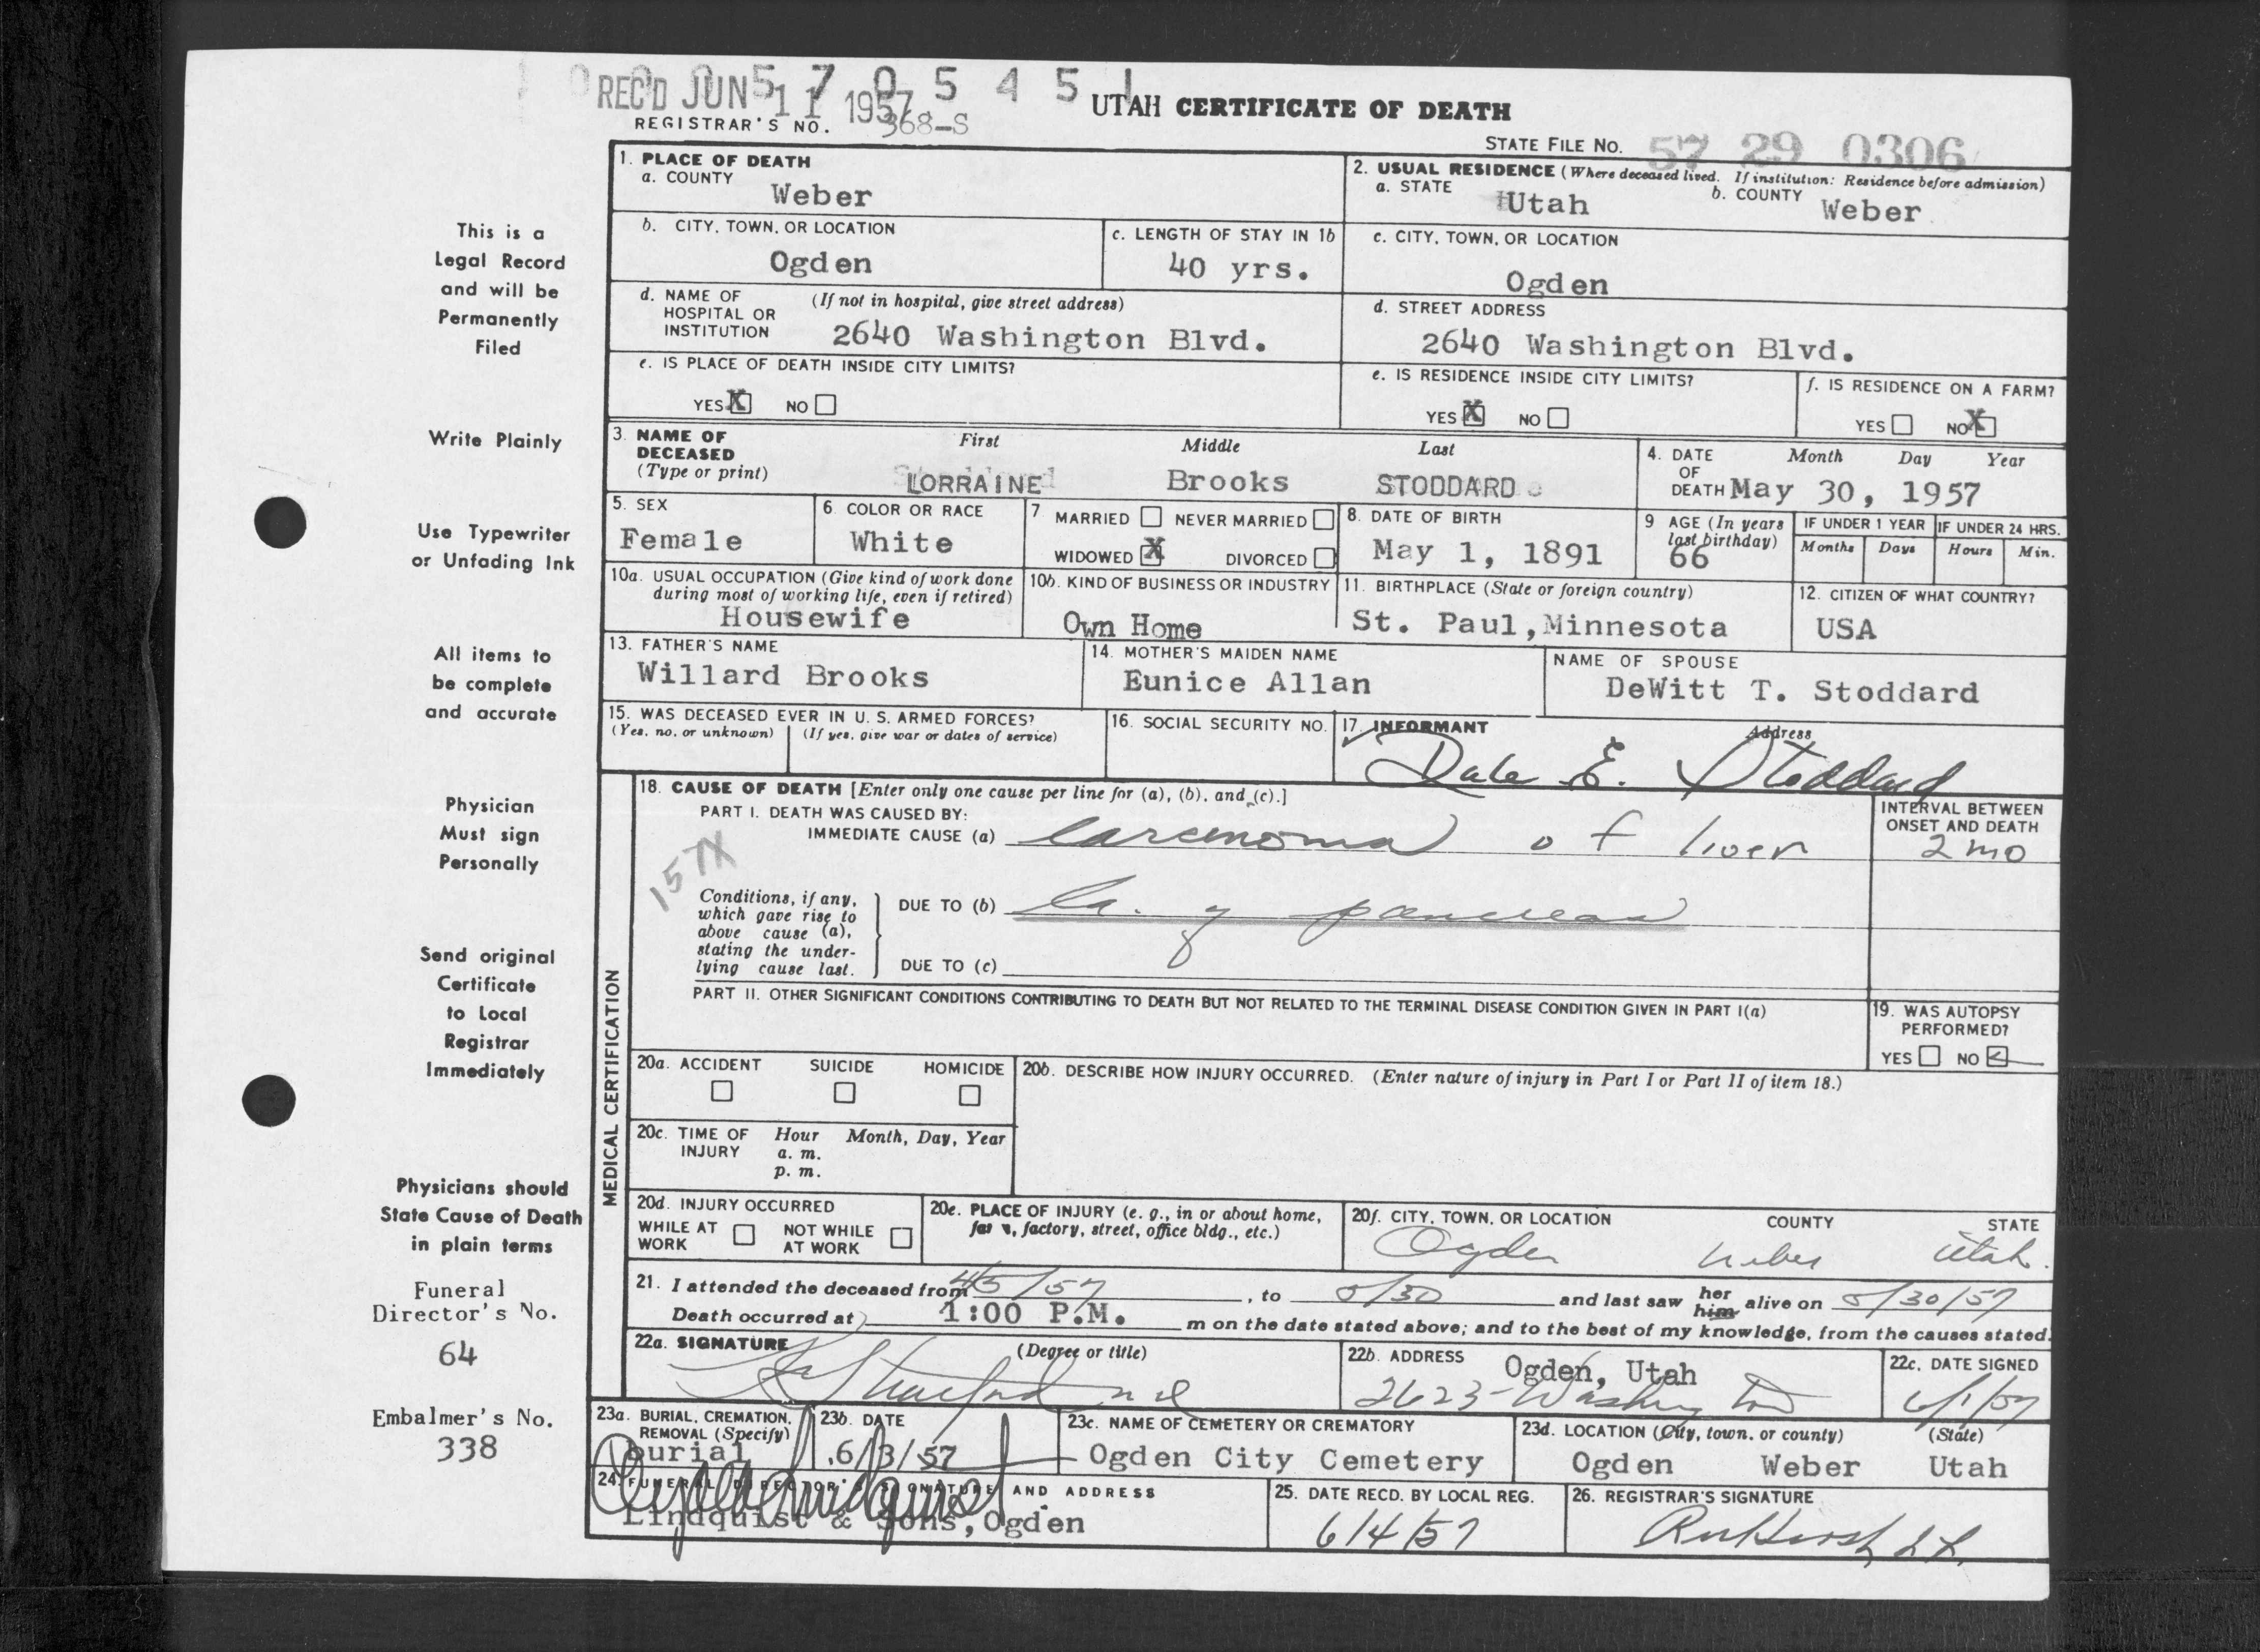 REC'D JUN 11 1957
570 5451
UTAH CERTIFICATE OF DEATH
REGISTRAR'S NO. 368-S
STATE FILE NO. 57 29 0306
1. PLACE OF DEATH
a. COUNTY
Weber
2. USUAL RESIDENCE (Where deceased lived. If institution: Residence before admission)
a. STATE
Utah
b. COUNTY
Weber
b. CITY, TOWN, OR LOCATION
Ogden
c. LENGTH OF STAY IN 1b
40 yrs.
c. CITY, TOWN, OR LOCATION
Ogden
d. NAME OF HOSPITAL OR INSTITUTION
(If not in hospital, give street address)
2640 Washington Blvd.
d. STREET ADDRESS
2640 Washington Blvd.
e. IS PLACE OF DEATH INSIDE CITY LIMITS?
YES X NO
e. IS RESIDENCE INSIDE CITY LIMITS?
YES X NO
f. IS RESIDENCE ON A FARM?
YES NO X
3. NAME OF DECEASED
(Type or print)
First Middle Last
LORRAINE Brooks STODDARD
4. DATE OF DEATH
Month Day Year
May 30, 1957
5. SEX
Female
6. COLOR OR RACE
White
7 MARRIED NEVER MARRIED
WIDOWED X DIVORCED
8. DATE OF BIRTH
May 1, 1891
9 AGE (In years last birthday)
66
IF UNDER 1 YEAR
Months Days
IF UNDER 24 HRS.
Hours Min.
10a. USUAL OCCUPATION (Give kind of work done during most of working life, even if retired)
Housewife
10b. KIND OF BUSINESS OR INDUSTRY
Own Home
11. BIRTHPLACE (State or foreign country)
St. Paul, Minnesota
12. CITIZEN OF WHAT COUNTRY?
USA
13. FATHER'S NAME
Willard Brooks
14. MOTHER'S MAIDEN NAME
Eunice Allan
NAME OF SPOUSE
DeWitt T. Stoddard
15. WAS DECEASED EVER IN U. S. ARMED FORCES?
(Yes, no, or unknown) (If yes, give war or dates of service)
16. SOCIAL SECURITY NO.
17. INFORMANT Address
Dale E. Stoddard
MEDICAL CERTIFICATION
18. CAUSE OF DEATH [Enter only one cause per line for (a), (b), and (c).]
PART I. DEATH WAS CAUSED BY:
IMMEDIATE CAUSE (a) Carcinoma of liver
INTERVAL BETWEEN ONSET AND DEATH
2 mo
157X
Conditions, if any, which gave rise to above cause (a), stating the underlying cause last.
DUE TO (b) Ca. of pancreas
DUE TO (c)
PART II. OTHER SIGNIFICANT CONDITIONS CONTRIBUTING TO DEATH BUT NOT RELATED TO THE TERMINAL DISEASE CONDITION GIVEN IN PART I(a)
19. WAS AUTOPSY PERFORMED?
YES NO
20a. ACCIDENT SUICIDE HOMICIDE
20b. DESCRIBE HOW INJURY OCCURRED. (Enter nature of injury in Part I or Part II of item 18.)
20c. TIME OF INJURY
Hour Month, Day, Year
a. m.
p. m.
20d. INJURY OCCURRED
WHILE AT WORK NOT WHILE AT WORK
20e. PLACE OF INJURY (e. g., in or about home, farm, factory, street, office bldg., etc.)
20f. CITY, TOWN, OR LOCATION COUNTY STATE
Ogden Weber Utah.
21. I attended the deceased from 4/5/57, to 5/30 and last saw her him alive on 5/30/57
Death occurred at 1:00 P.M. m on the date stated above; and to the best of my knowledge, from the causes stated.
22a. SIGNATURE (Degree or title)
22b. ADDRESS
Ogden, Utah
2623 Washington
22c. DATE SIGNED
6/1/57
23a. BURIAL, CREMATION, REMOVAL (Specify)
burial
23b. DATE
6/3/57
23c. NAME OF CEMETERY OR CREMATORY
Ogden City Cemetery
23d. LOCATION (City, town, or county) (State)
Ogden Weber Utah
24. FUNERAL DIRECTOR'S SIGNATURE AND ADDRESS
Lindquist & Sons, Ogden
25. DATE RECD. BY LOCAL REG.
6/4/57
26. REGISTRAR'S SIGNATURE
This is a
Legal Record
and will be
Permanently
Filed
Write Plainly
Use Typewriter
or Unfading Ink
All items to
be complete
and accurate
Physician
Must sign
Personally
Send original
Certificate
to Local
Registrar
Immediately
Physicians should
State Cause of Death
in plain terms
Funeral
Director's No.
64
Embalmer's No.
338